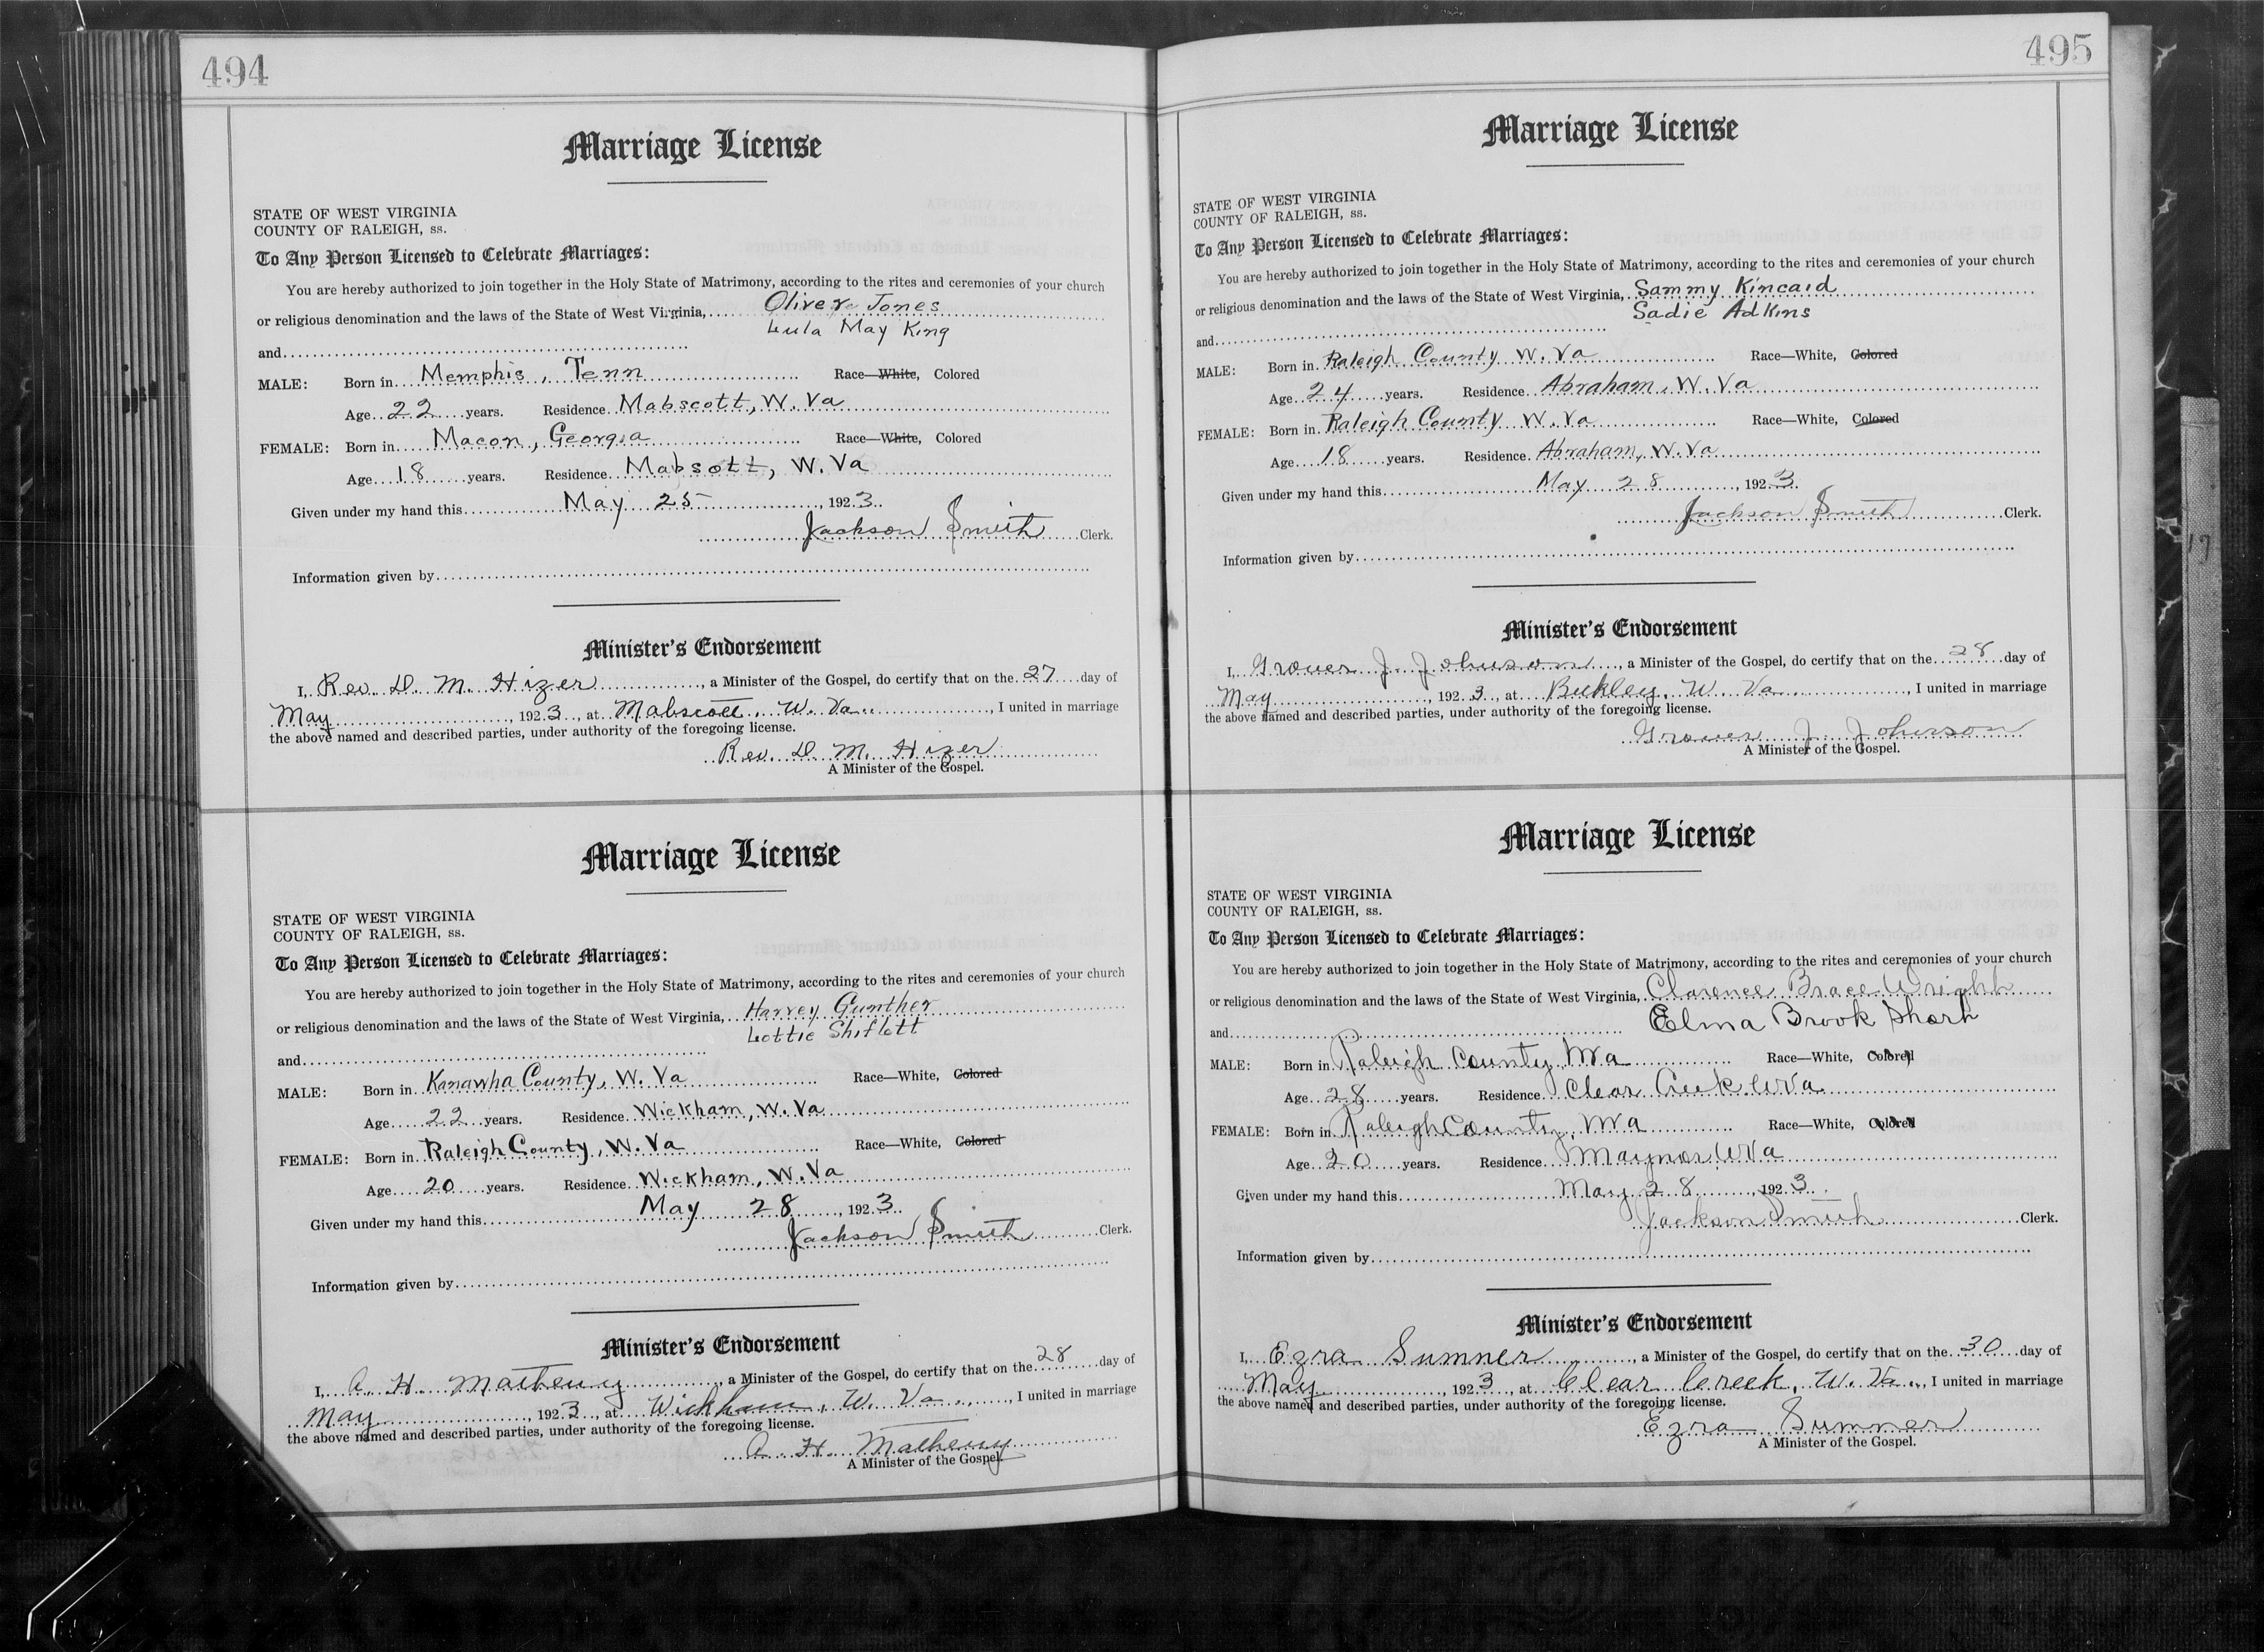 494
Marriage License
STATE OF WEST VIRGINIA
COUNTY OF RALEIGH, ss.
To Any Person Licensed to Celebrate Marriages:
You are hereby authorized to join together in the Holy State of Matrimony, according to the rites and ceremonies of your church
or religious denomination and the laws of the State of West Virginia, Oliver Jones
and Lula May King
MALE: Born in Memphis, Tenn Race—White, Colored
Age 22 years. Residence Mabscott, W. Va
FEMALE: Born in Macon, Georgia Race—White, Colored
Age 18 years. Residence Mabsott, W. Va
Given under my hand this May 25, 1923.
Jackson Smith Clerk.
Information given by
Minister's Endorsement
I, Rev. D. M. Hizer, a Minister of the Gospel, do certify that on the 27 day of
May, 1923, at Mabscott, W. Va., I united in marriage
the above named and described parties, under authority of the foregoing license.
Rev. D. M. Hizer
A Minister of the Gospel.
Marriage License
STATE OF WEST VIRGINIA
COUNTY OF RALEIGH, ss.
To Any Person Licensed to Celebrate Marriages:
You are hereby authorized to join together in the Holy State of Matrimony, according to the rites and ceremonies of your church
or religious denomination and the laws of the State of West Virginia, Harvey Gunther
and Lottie Shiflett
MALE: Born in Kanawha County, W. Va Race—White, Colored
Age 22 years. Residence Wickham, W. Va
FEMALE: Born in Raleigh County, W. Va Race—White, Colored
Age 20 years. Residence Wickham, W. Va
Given under my hand this May 28, 1923.
Jackson Smith Clerk.
Information given by
Minister's Endorsement
I, A. H. Matheny, a Minister of the Gospel, do certify that on the 28 day of
May, 1923, at Wickham, W. Va., I united in marriage
the above named and described parties, under authority of the foregoing license.
A. H. Matheny
A Minister of the Gospel.
495
Marriage License
STATE OF WEST VIRGINIA
COUNTY OF RALEIGH, ss.
To Any Person Licensed to Celebrate Marriages:
You are hereby authorized to join together in the Holy State of Matrimony, according to the rites and ceremonies of your church
or religious denomination and the laws of the State of West Virginia, Sammy Kincaid
and Sadie Adkins
MALE: Born in Raleigh County W. Va Race—White, Colored
Age 24 years. Residence Abraham, W. Va
FEMALE: Born in Raleigh County W. Va Race—White, Colored
Age 18 years. Residence Abraham, W. Va
Given under my hand this May 28, 1923.
Jackson Smith Clerk.
Information given by
Minister's Endorsement
I, Grover J. Johnson, a Minister of the Gospel, do certify that on the 28 day of
May, 1923, at Beckley, W. Va., I united in marriage
the above named and described parties, under authority of the foregoing license.
Grover J. Johnson
A Minister of the Gospel.
Marriage License
STATE OF WEST VIRGINIA
COUNTY OF RALEIGH, ss.
To Any Person Licensed to Celebrate Marriages:
You are hereby authorized to join together in the Holy State of Matrimony, according to the rites and ceremonies of your church
or religious denomination and the laws of the State of West Virginia, Clarence Brace Wright
and Elma Brook
MALE: Born in Raleigh County, WVa Race—White, Colored
Age 28 years. Residence Clear Creek WVa
FEMALE: Born in Raleigh County, WVa Race—White, Colored
Age 20 years. Residence Maynor WVa
Given under my hand this May 28, 1923.
Jackson Smith Clerk.
Information given by
Minister's Endorsement
I, Ezra Sumner, a Minister of the Gospel, do certify that on the 30 day of
May, 1923, at Clear Creek, W. Va., I united in marriage
the above named and described parties, under authority of the foregoing license.
Ezra Sumner
A Minister of the Gospel.
17